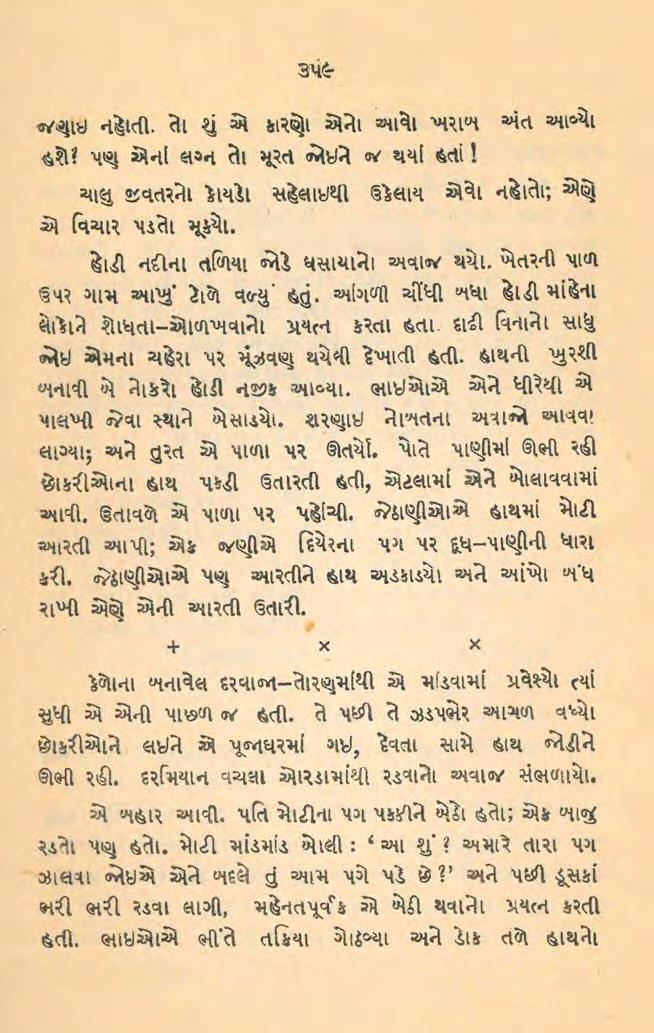 ૩૫૯
જણાઇ નહોતી. તો શું એ કારણે એનો આવો ખરાબ અંત આવ્યો
હશે? પણ એનાં લગ્ન તો મૂરત જોઇને જ થયાં હતાં !
ચાલુ જીવતરનો કોયડો સહેલાઇથી ઉકેલાય એવો નહોતો; એણે
એ વિચાર પડતો મૂક્યો.
હોડી નદીના તળિયા જોડે ઘસાયાનો અવાજ થયો. ખેતરની પાળ
ઉપર ગામ આખું ટોળે વળ્યું હતું. આંગળી ચીંધી બધા હોડી માંહેના
લોકોને શોધતા–ઓળખવાનો પ્રયત્ન કરતા હતા. દાઢી વિનાનો સાધુ
જોઇ એમના ચહેરા પર મૂંઝવણ થયેલી દેખાતી હતી. હાથની ખુરશી
બનાવી બે નોકરો હોડી નજીક આવ્યા. ભાઇઓએ એને ધીરેથી એ
પાલખી જેવા સ્થાને બેસાડયો. શરણાઇ નોબતના અવાજો આવવા
લાગ્યા; અને તુરત એ પાળા પર ઊતર્યો. પોતે પાણીમાં ઊભી રહી
છોકરીઓના હાથ પકડી ઉતારતી હતી, એટલામાં એને બોલાવવામાં
આવી. ઉતાવળે એ પાળા પર પહોંચી. જેઠાણીઓએ હાથમાં મોટી
આરતી આપી; એક જણીએ દિયેરના પગ પર દૂધ–પાણીની ધારા
કરી. જેઠાણીઓએ પણ આરતીને હાથ અડકાડયો અને આંખો બંધ
રાખી એણે એની આરતી ઉતારી.
+ × ×
કેળોના બનાવેલ દરવાજા–તોરણમાંથી એ માંડવામાં પ્રવેશ્યો ત્યાં
સુધી એ એની પાછળ જ હતી. તે પછી તે ઝડપભેર આગળ વધ્યો
છોકરીઓને લઇને એ પૂજાઘરમાં ગઇ, દેવતા સામે હાથ જોડીને
ઊભી રહી. દરમિયાન વચલા ઓરડામાંથી રડવાનો અવાજ સંભળાયો.
એ બહાર આવી. પતિ મોટીના પગ પકડીને બેઠો હતો; એક બાજુ
રડતો પણ હતો. મોટી માંડમાંડ બોલી : ‘આ શું ? અમારે તારા પગ
ઝાલવા જોઇએ એને બદલે તું આમ પગે પડે છે ?’ અને પછી ડૂસકાં
ભરી ભરી રડવા લાગી, મહેનતપૂર્વક એ બેઠી થવાનો પ્રયત્ન કરતી
હતી. ભાઇઓએ ભીંતે તકિયા ગોઠવ્યા અને ડોક તળે હાથનો